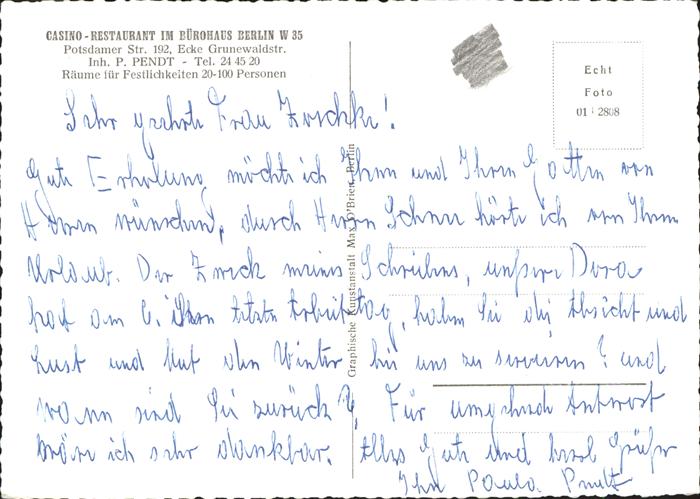 CASINO-RESTAURANT IM BÜROHAUS BERLIN W 35
Potsdamer Str. 192, Ecke Grunewaldstr.
Inh. P. PENDT - Tel. 24 45 20
Räume für Festlichkeiten 20-100 Personen
Echt
Foto
01 2808
Graphische Kunstanstalt Max O'Brien, Berlin
Sehr geehrte Frau
Gute Erholung möchte ich Ihnen und Ihrem Gatten von
Herzen wünschen, durch Herrn hörte ich von Ihrem
Urlaub. Der Zweck meines Schreibens, unsere Dora
hat am 6. ihren letzten Arbeitstag, haben Sie die Absicht und
Lust und Mut den Winter bei uns zu servieren? und
wann sind Sie zurück? Für umgehende Antwort
wäre ich sehr dankbar. Alles Gute und herzl. Grüße
Ihre Paula Pendt